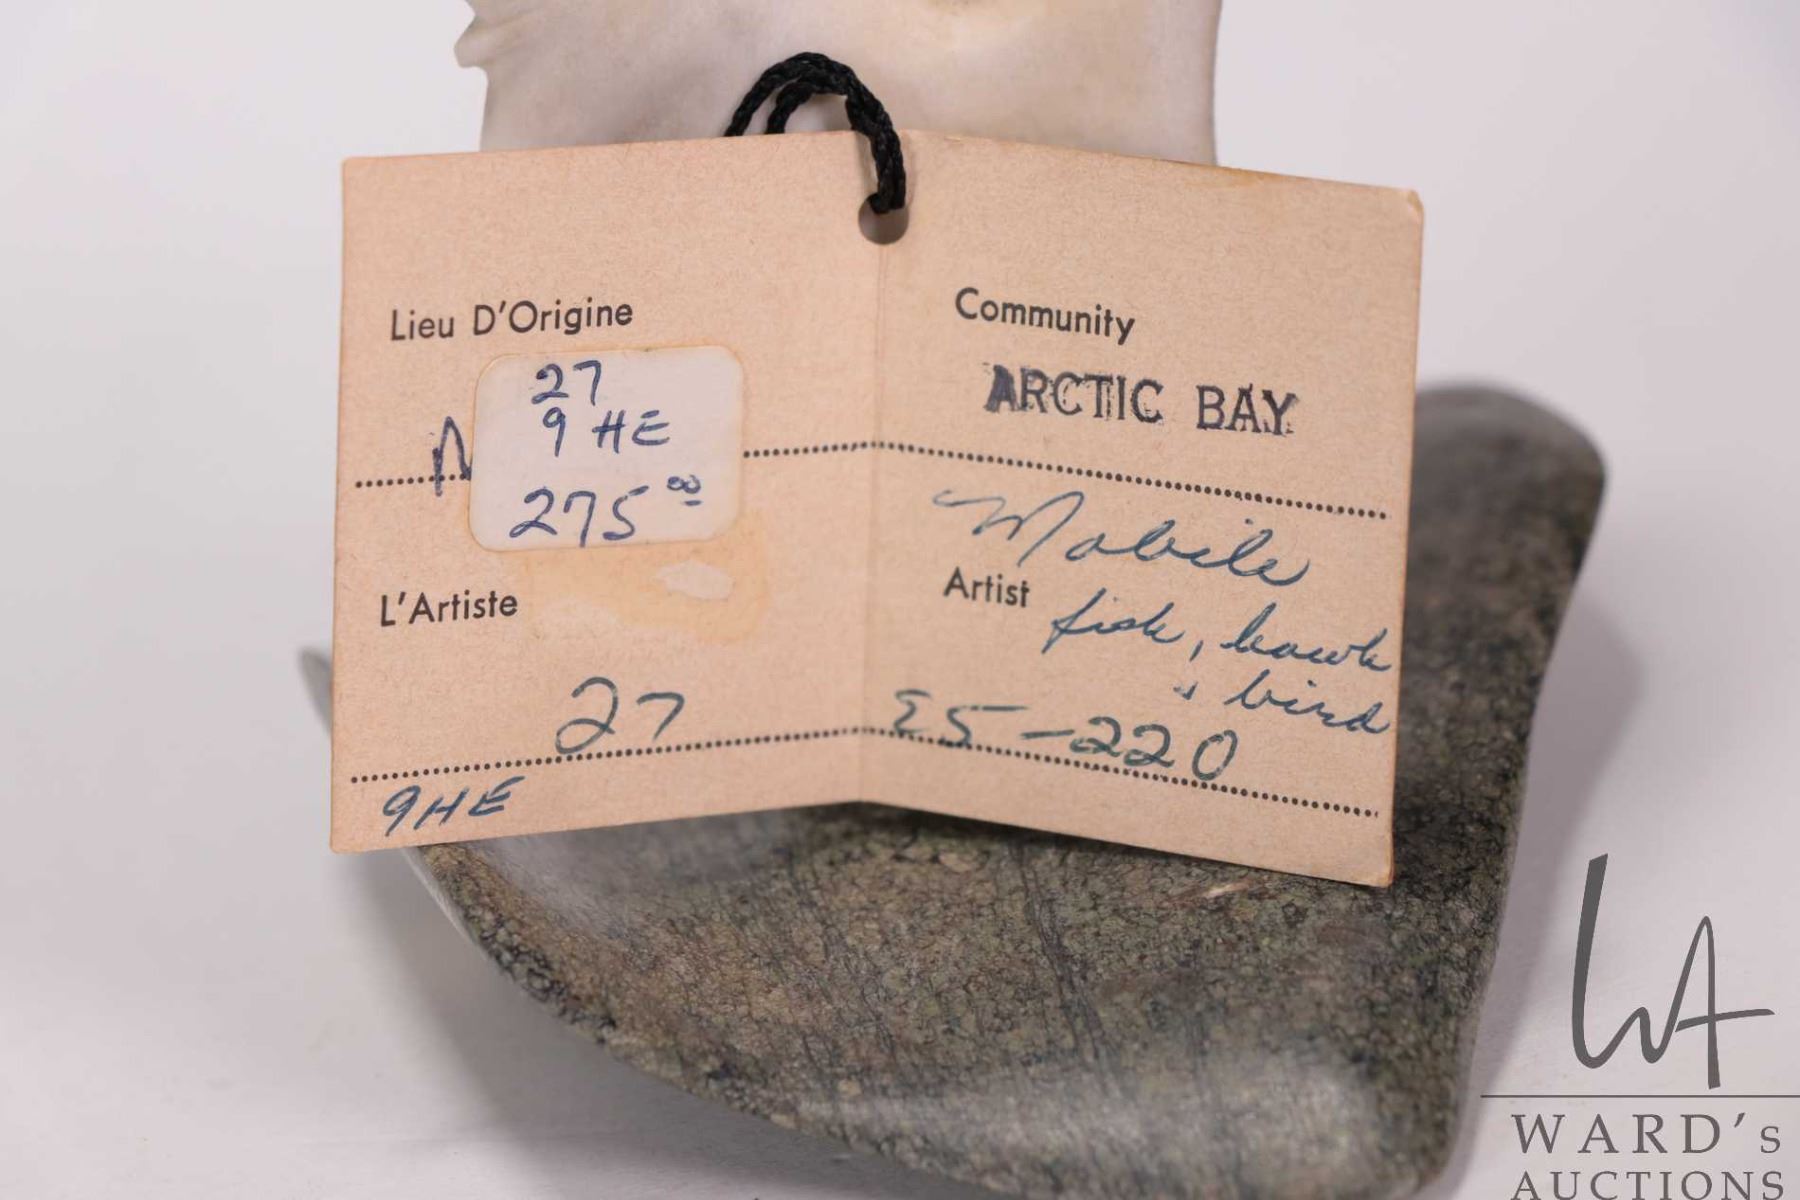 Lieu D'Origine
27
9 HE
N
275.00
L'Artiste
27
9HE
Community
ARCTIC BAY
Mobile
Artist
fish, hawk
" bird
E5-220
WARD's
AUCTIONS